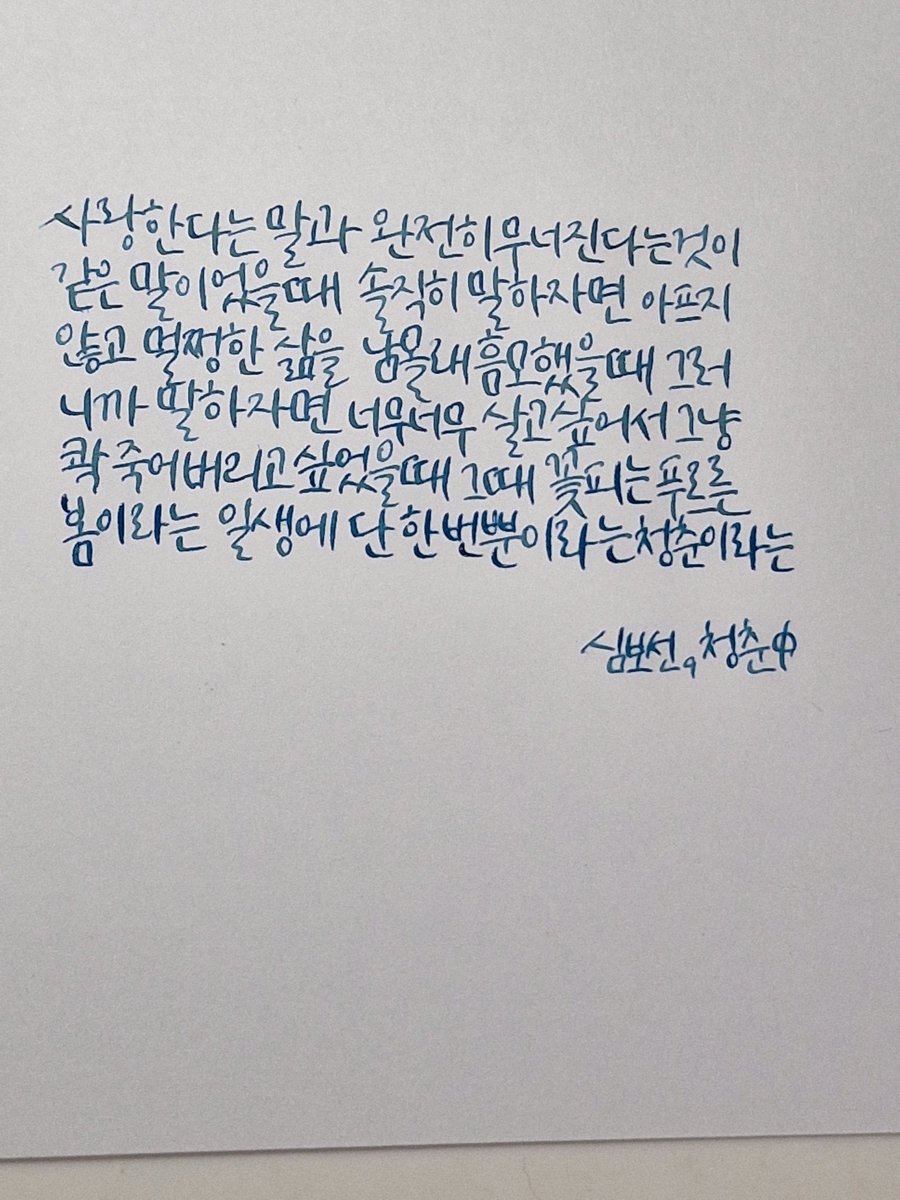 사랑한다는 말과 완전히 무너진다는 것이
같은 말이었을 때 솔직히 말하자면 아프지
않고 멀쩡한 삶을 남몰래 흠모했을 때 그러
니까 말하자면 너무너무 살고 싶어서 그냥
콱 죽어버리고 싶었을 때 그때 꽃피는 푸르른
봄이라는 일생에 단 한번뿐이라는 청춘이라는
심보선, 청춘 中